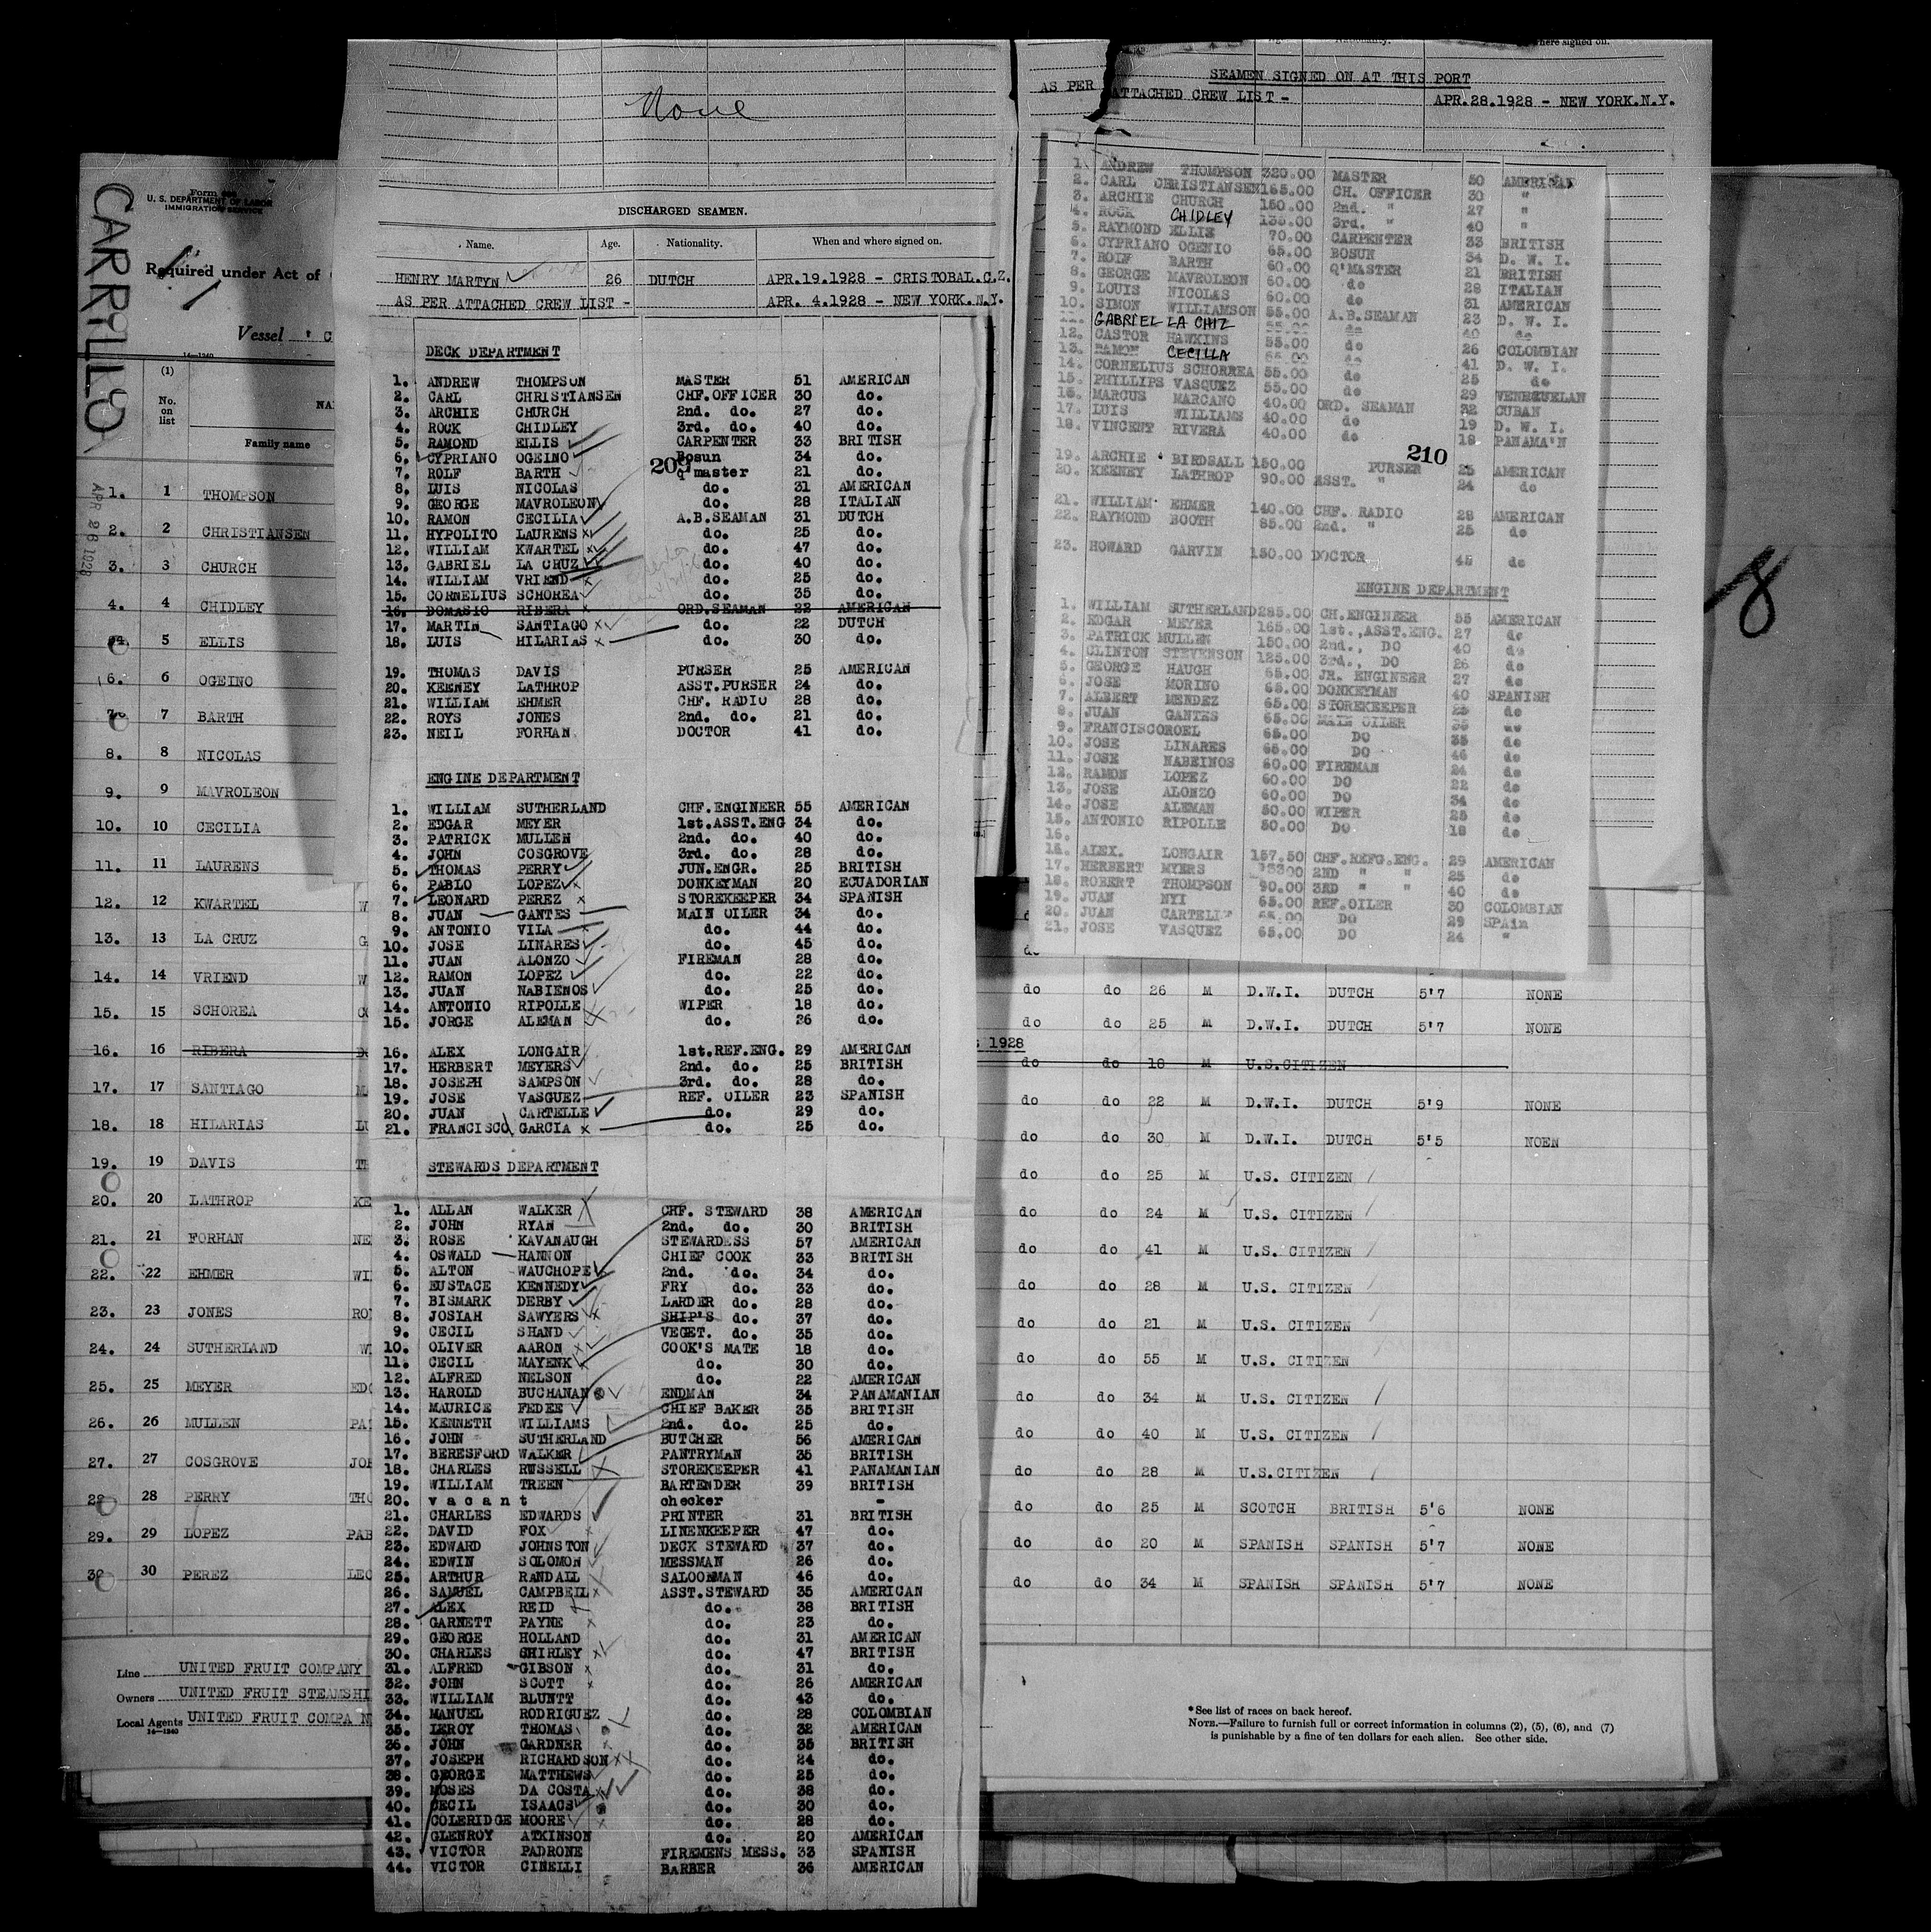 CARRILLO
Form 689
U. S. DEPARTMENT OF LABOR
IMMIGRATION SERVICE
Required under Act of
Vessel
14—1240
(1)
No. on list
Family name
APR 26 1928
1. 1 THOMPSON
2. 2 CHRISTIANSEN
3. 3 CHURCH
4. 4 CHIDLEY
5 ELLIS
6. 6 OGEINO
7 BARTH
8. 8 NICOLAS
9. 9 MAVROLEON
10. 10 CECILIA
11. 11 LAURENS
12. 12 KWARTEL
13. 13 LA CRUZ
14. 14 VRIEND
15. 15 SCHOREA
16. 16 RIBERA
17. 17 SANTIAGO
18. 18 HILARIAS
19. 19 DAVIS
20. 20 LATHROP
21. 21 FORHAN
22. 22 EHMER
23. 23 JONES
24. 24 SUTHERLAND
25. 25 MEYER
26. 26 MULLEN
27. 27 COSGROVE
28 PERRY
29. 29 LOPEZ
30 PEREZ
Line UNITED FRUIT COMPANY
Owners UNITED FRUIT STEAMSHI
Local Agents UNITED FRUIT COMPA N
14—1240
None
DISCHARGED SEAMEN.
Name. Age. Nationality. When and where signed on.
HENRY MARTYN 26 DUTCH APR.19.1928 - CRISTOBAL.C.Z.
AS PER ATTACHED CREW LIST - APR. 4.1928 - NEW YORK.N.Y.
DECK DEPARTMENT
1. ANDREW THOMPSON MASTER 51 AMERICAN
2. CARL CHRISTIANSEN CHF.OFFICER 30 do.
3. ARCHIE CHURCH 2nd. do. 27 do.
4. ROCK CHIDLEY 3rd. do. 40 do.
5. RAMOND ELLIS CARPENTER 33 BRITISH
6. CYPRIANO OGEINO Bosun 34 do.
209
7. ROLF BARTH q'master 21 do.
8. LUIS NICOLAS do. 31 AMERICAN
9. GEORGE MAVROLEON do. 28 ITALIAN
10. RAMON CECILIA A.B.SEAMAN 31 DUTCH
11. HYPOLITO LAURENS do. 25 do.
12. WILLIAM KWARTEL do. 47 do.
13. GABRIEL LA CRUZ do. 40 do.
14. WILLIAM VRIEND do. 25 do.
15. CORNELIUS SCHOREA do. 35 do.
16. DOMASIO RIBERA ORD.SEAMAN 22 AMERICAN
17. MARTIN SANTIAGO do. 22 DUTCH
18. LUIS HILARIAS do. 30 do.
19. THOMAS DAVIS PURSER 25 AMERICAN
20. KEENEY LATHROP ASST.PURSER 24 do.
21. WILLIAM EHMER CHF. RADIO 28 do.
22. ROYS JONES 2nd. do. 21 do.
23. NEIL FORHAN DOCTOR 41 do.
ENGINE DEPARTMENT
1. WILLIAM SUTHERLAND CHF.ENGINEER 55 AMERICAN
2. EDGAR MEYER 1st.ASST.ENG 34 do.
3. PATRICK MULLEN 2nd. do. 40 do.
4. JOHN COSGROVE 3rd. do. 28 do.
5. THOMAS PERRY JUN.ENGR. 25 BRITISH
6. PABLO LOPEZ DONKEYMAN 20 ECUADORIAN
7. LEONARD PEREZ STOREKEEPER 34 SPANISH
8. JUAN GANTES MAIN OILER 34 do.
9. ANTONIO VILA do. 44 do.
10. JOSE LINARES do. 45 do.
11. JUAN ALONZO FIREMAN 28 do.
12. RAMON LOPEZ do. 22 do.
13. JUAN NABIENOS do. 25 do.
14. ANTONIO RIPOLLE WIPER 18 do.
15. JORGE ALEMAN do. 26 do.
16. ALEX LONGAIR 1st.REF.ENG. 29 AMERICAN
17. HERBERT MEYERS 2nd. do. 25 BRITISH
18. JOSEPH SAMPSON 3rd. do. 28 do.
19. JOSE VASGUEZ REF. OILER 23 SPANISH
20. JUAN CARTELLE do. 29 do.
21. FRANCISCO GARCIA do. 25 do.
STEWARDS DEPARTMENT
1. ALLAN WALKER CHF. STEWARD 38 AMERICAN
2. JOHN RYAN 2nd. do. 30 BRITISH
3. ROSE KAVANAUGH STEWARDESS 57 AMERICAN
4. OSWALD HANNON CHIEF COOK 33 BRITISH
5. ALTON WAUCHOPE 2nd. do. 34 do.
6. EUSTACE KENNEDY FRY do. 33 do.
7. BISMARK DERBY LARDER do. 28 do.
8. JOSIAH SAWYERS SHIP'S do. 37 do.
9. CECIL SHAND VEGET. do. 35 do.
10. OLIVER AARON COOK'S MATE 18 do.
11. CECIL MAYENK do. 30 do.
12. ALFRED NELSON do. 22 AMERICAN
13. HAROLD BUCHANAN ENDMAN 34 PANAMANIAN
14. MAURICE FEDEE CHIEF BAKER 35 BRITISH
15. KENNETH WILLIAMS 2nd. do. 25 do.
16. JOHN SUTHERLAND BUTCHER 56 AMERICAN
17. BERESFORD WALKER PANTRYMAN 35 BRITISH
18. CHARLES RUSSELL STOREKEEPER 41 PANAMANIAN
19. WILLIAM TREEN BARTENDER 39 BRITISH
20. v a c a n t checker -
21. CHARLES EDWARDS PRINTER 31 BRITISH
22. DAVID FOX LINENKEEPER 47 do.
23. EDWARD JOHNSTON DECK STEWARD 37 do.
24. EDWIN SOLOMON MESSMAN 26 do.
25. ARTHUR RANDALL SALOONMAN 46 do.
26. SAMUEL CAMPBELL ASST.STEWARD 35 AMERICAN
27. ALEX REID do. 38 BRITISH
28. GARNETT PAYNE do. 23 do.
29. GEORGE HOLLAND do. 31 AMERICAN
30. CHARLES SHIRLEY do. 47 BRITISH
31. ALFRED GIBSON do. 31 do.
32. JOHN SCOTT do. 26 AMERICAN
33. WILLIAM BLUNTT do. 43 do.
34. MANUEL RODRIGUEZ do. 28 COLOMBIAN
35. LEROY THOMAS do. 32 AMERICAN
36. JOHN GARDNER do. 35 BRITISH
37. JOSEPH RICHARDSON do. 24 do.
38. GEORGE MATTHEWS do. 25 do.
39. MOSES DA COSTA do. 38 do.
40. CECIL ISAACS do. 30 do.
41. COLERIDGE MOORE do. 28 do.
42. GLENROY ATKINSON do. 20 AMERICAN
43. VICTOR PADRONE FIREMENS MESS. 33 SPANISH
44. VICTOR CINELLI BARBER 36 AMERICAN
Nationality. here signed on.
SEAMEN SIGNED ON AT THIS PORT
AS PER ATTACHED CREW LIST - APR.28.1928 - NEW YORK.N.Y.
1. ANDREW THOMPSON 320.00 MASTER 50 AMERICAN
2. CARL CHRISTIANSEN 185.00 CH. OFFICER 30 "
3. ARCHIE CHURCH 150.00 2nd. " 27 "
4. ROCK CHIDLEY 135.00 3rd. " 40 "
5. RAYMOND ELLIS 70.00 CARPENTER 33 BRITISH
6. CYPRIANO OGENIO 65.00 BOSUN 34 D. W. I.
7. ROLF BARTH 60.00 Q'MASTER 21 BRITISH
8. GEORGE MAVROLEON 60.00 do 28 ITALIAN
9. LOUIS NICOLAS 60.00 do 31 AMERICAN
10. SIMON WILLIAMSON 55.00 A.B.SEAMAN 23 D. W. I.
11. GABRIEL LA CHIZ 55.00 do 40 do
12. CASTOR HAWKINS 55.00 do 26 COLOMBIAN
13. RAMON CECILLA 55.00 do 41 D. W. I.
14. CORNELIUS SCHORREA 55.00 do 25 do
15. PHYLLIPS VASQUEZ 55.00 do 29 VENEZUELAN
16. MARCUS MARCANO 40.00 ORD. SEAMAN 32 CUBAN
17. LUIS WILLIAMS 40.00 do 19 D. W. I.
18. VINCENT RIVERA 40.00 do 18 PANAMA'N
210
19. ARCHIE BIRDSALL 150.00 PURSER 25 AMERICAN
20. KEENEY LATHROP 90.00 ASST. " 24 do
21. WILLIAM EHMER 140.00 CHF. RADIO 28 AMERICAN
22. RAYMOND BOOTH 85.00 2nd. " 25 do
23. HOWARD GARVIN 150.00 DOCTOR 45 do
ENGINE DEPARTMENT
1. WILLIAM SUTHERLAND 285.00 CH.ENGINEER 55 AMERICAN
2. EDGAR MEYER 165.00 1st.,ASST.ENG. 27 do
3. PATRICK MULLEN 150.00 2nd., DO 40 do
4. CLINTON STEVENSON 125.00 3rd., DO 26 do
5. GEORGE HAUGH 65.00 JR. ENGINEER 27 do
6. JOSE MORINO 65.00 DONKEYMAN 40 SPANISH
7. ALBERT MENDEZ 65.00 STOREKEEPER 25 do
8. JUAN GANTES 65.00 MAIN OILER do
9. FRANCISCOROEL 65.00 DO 35 do
10. JOSE LINARES 65.00 DO 46 do
11. JOSE NABEINOS 60.00 FIREMAN 24 do
12. RAMON LOPEZ 60.00 DO 22 do
13. JOSE ALONZO 60.00 DO 34 do
14. JOSE ALEMAN 50.00 WIPER 25 do
15. ANTONIO RIPOLLE 50.00 DO 18 do
16.
16. ALEX. LONGAIR 157.50 CHF.REFG.ENG. 29 AMERICAN
17. HERBERT MYERS 2ND " " 25 do
18. ROBERT THOMPSON 90.00 3RD " " 40 do
19. JUAN NYI 65.00 REF.OILER 30 COLOMBIAN
20. JUAN CARTELI 65.00 DO 29 SPAin
21. JOSE VASQUEZ 65.00 DO 24 "
8
do do 26 M D.W.I. DUTCH 5'7 NONE
do do 25 M D.W.I. DUTCH 5'7 NONE
1928
do do 18 M U.S.CITIZEN
do do 22 M D.W.I. DUTCH 5'9 NONE
do do 30 M D.W.I. DUTCH 5'5 NOEN
do do 25 M U.S. CITIZEN
do do 24 M U.S. CITIZEN
do do 41 M U.S. CITIZEN
do do 28 M U.S. CITIZEN
do do 21 M U.S. CITIZEN
do do 55 M U.S. CITIZEN
do do 34 M U.S. CITIZEN
do do 40 M U.S. CITIZEN
do do 28 M U.S.CITIZEN
do do 25 M SCOTCH BRITISH 5'6 NONE
do do 20 M SPANISH SPANISH 5'7 NONE
do do 34 M SPANISH SPANISH 5'7 NONE
*See list of races on back hereof.
NOTE.—Failure to furnish full or correct information in columns (2), (5), (6), and (7)
is punishable by a fine of ten dollars for each alien. See other side.